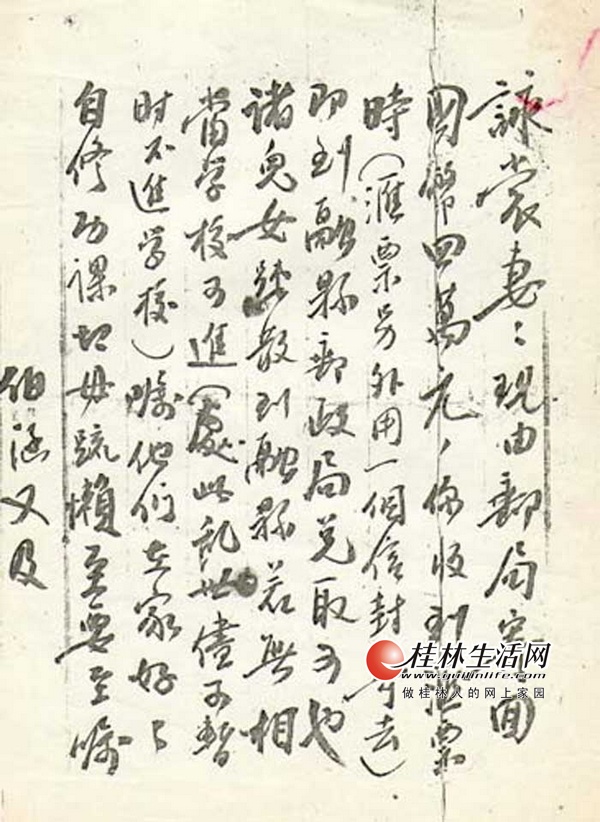 詠裳妻：现由邮局寄回
國幣四萬元，你收到滙票
時（滙票另外用一個信封寄去）
即到融縣郵政局兑取可也
諸兒女疏散到融縣若無相
當学校可進（處此乱世儘可暫
时不進学校）嘱他们在家好々
自修功課切毋疏懶至要至嘱
伯涵又及
桂林生活网
www.guilinlife.com
做桂林人的网上家园